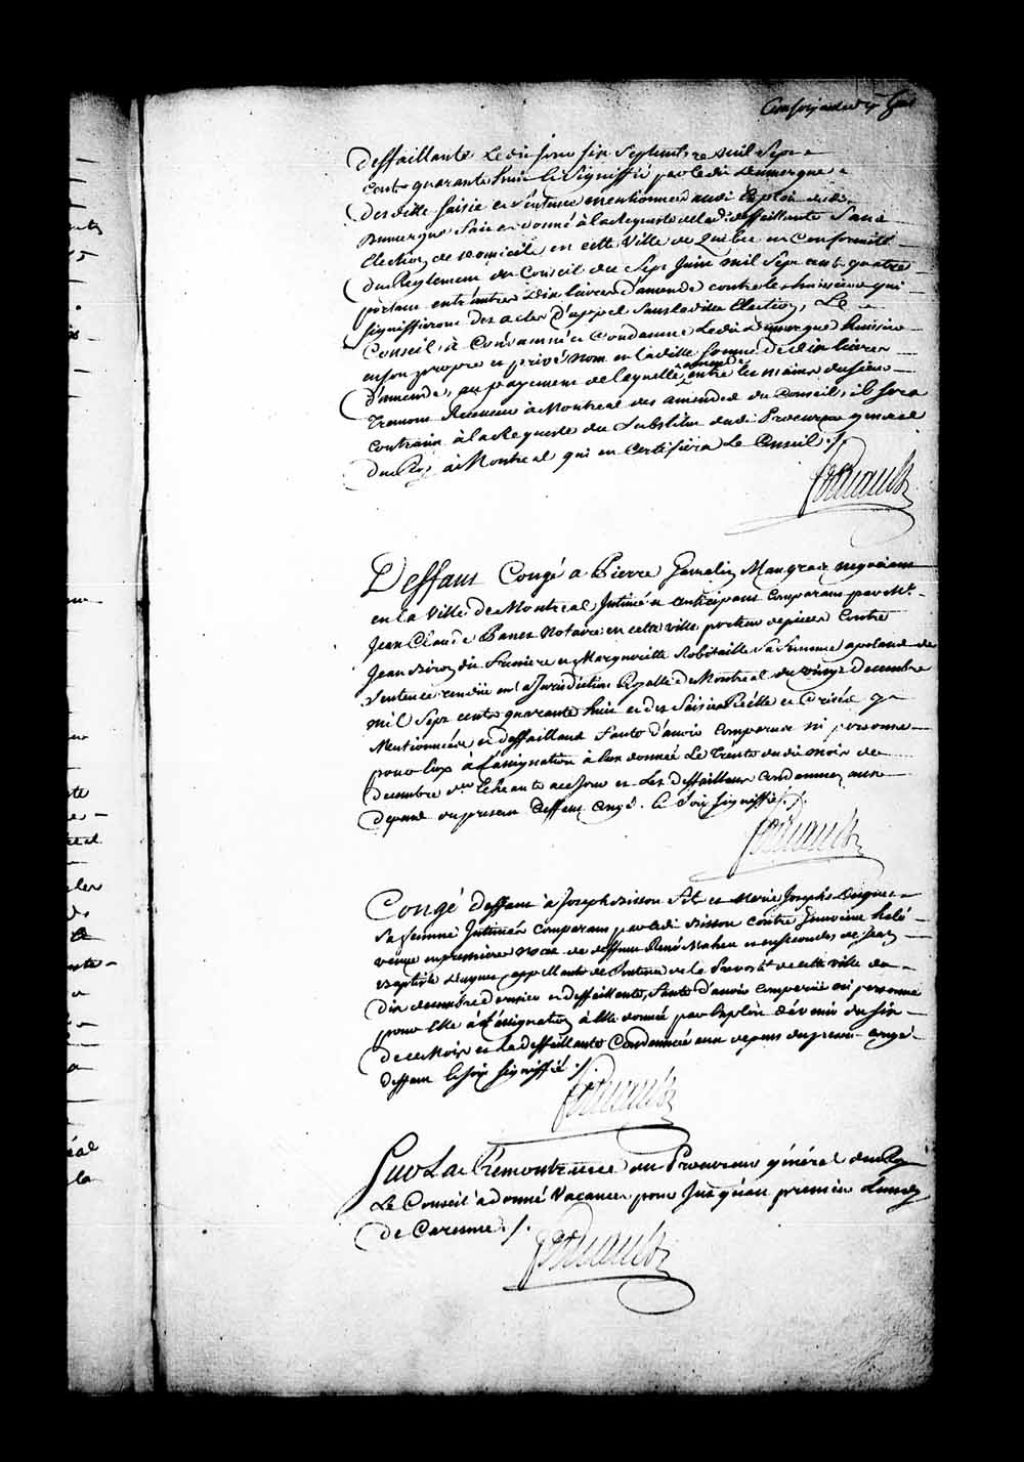 deffaillante Ledit jour six Septembre mil Sept
cent quarante huit le Signiffié par ledit Dumergue
des ditte Saisie et Sentence mentionnée audit Exploit dudit
Dumergue donné à la Requeste de la de. deffaillante Sans
Election de domicile en cette Ville de Quebec en Conformité
du Reglement du Conseil du Sept Juin mil Sept cent quatre
portant entr'autres dix livres d'amende contre les huissiers qui
signiffiront des actes d'appel Sans ladite Election, Le
Conseil à Condamné et Condamne Ledit Dumergue huissier
en son propre et privé nom en laditte Somme de dix livres
d'amende, au payement de laquelle entre les mains du Sieur
Receveur à Montreal des amendes du Conseil, il sera
Contraint à la Requeste du Substitut dudit Procureur general
du Roy à Montreal qui en Certifiera Le Conseil ./.
Deffaut Congé a Pierre Gamelin Maugras negociant
en la Ville de Montreal Intimé et anticipant Comparant par Me.
Jean Claude Panet Notaire en cette ville porteur de pieces Contre
Jean dit et Margueritte Robitaille Sa femme apelans de
Sentence rendüe en la Jurisdiction Royalle de Montreal du vingt Decembre
mil Sept cent quarante huit et des Saisie Réélle et Criée y
Mentionnées et deffaillans faute d'avoir comparu ni personne
pour Eux à l'assignation à Eux donnée Le Trente dudit mois de
decembre Echeante à ce Jour et Les deffaillans Condamnez aux
depens du present deffaut Congé. Et Soit Signiffié ./.
Congé deffaut à Joseph Sisson et Marie Joseph Dugues
Sa femme Intimés comparant par ledit Sisson contre Genevieve halé
veuve en premiere noce de deffunt René Maheu et en secondes de Jean
Baptiste Dugues appellante de Sentence de la Prevosté de cette ville du
dix decembre dernier et deffaillante, faute d'avoir comparu ni personne
pour Elle à l'assignation à Elle donnée par Exploit d'avenir du six
de ce Mois et La deffaillante Condamnée aux depens du present congé
deffaut Et soit Signiffié ./.
Sur La Remontrance du Procureur général du Roy
Le Conseil a donné Vacances pour Jusqu'au premier Lundy
de Caresme ./.